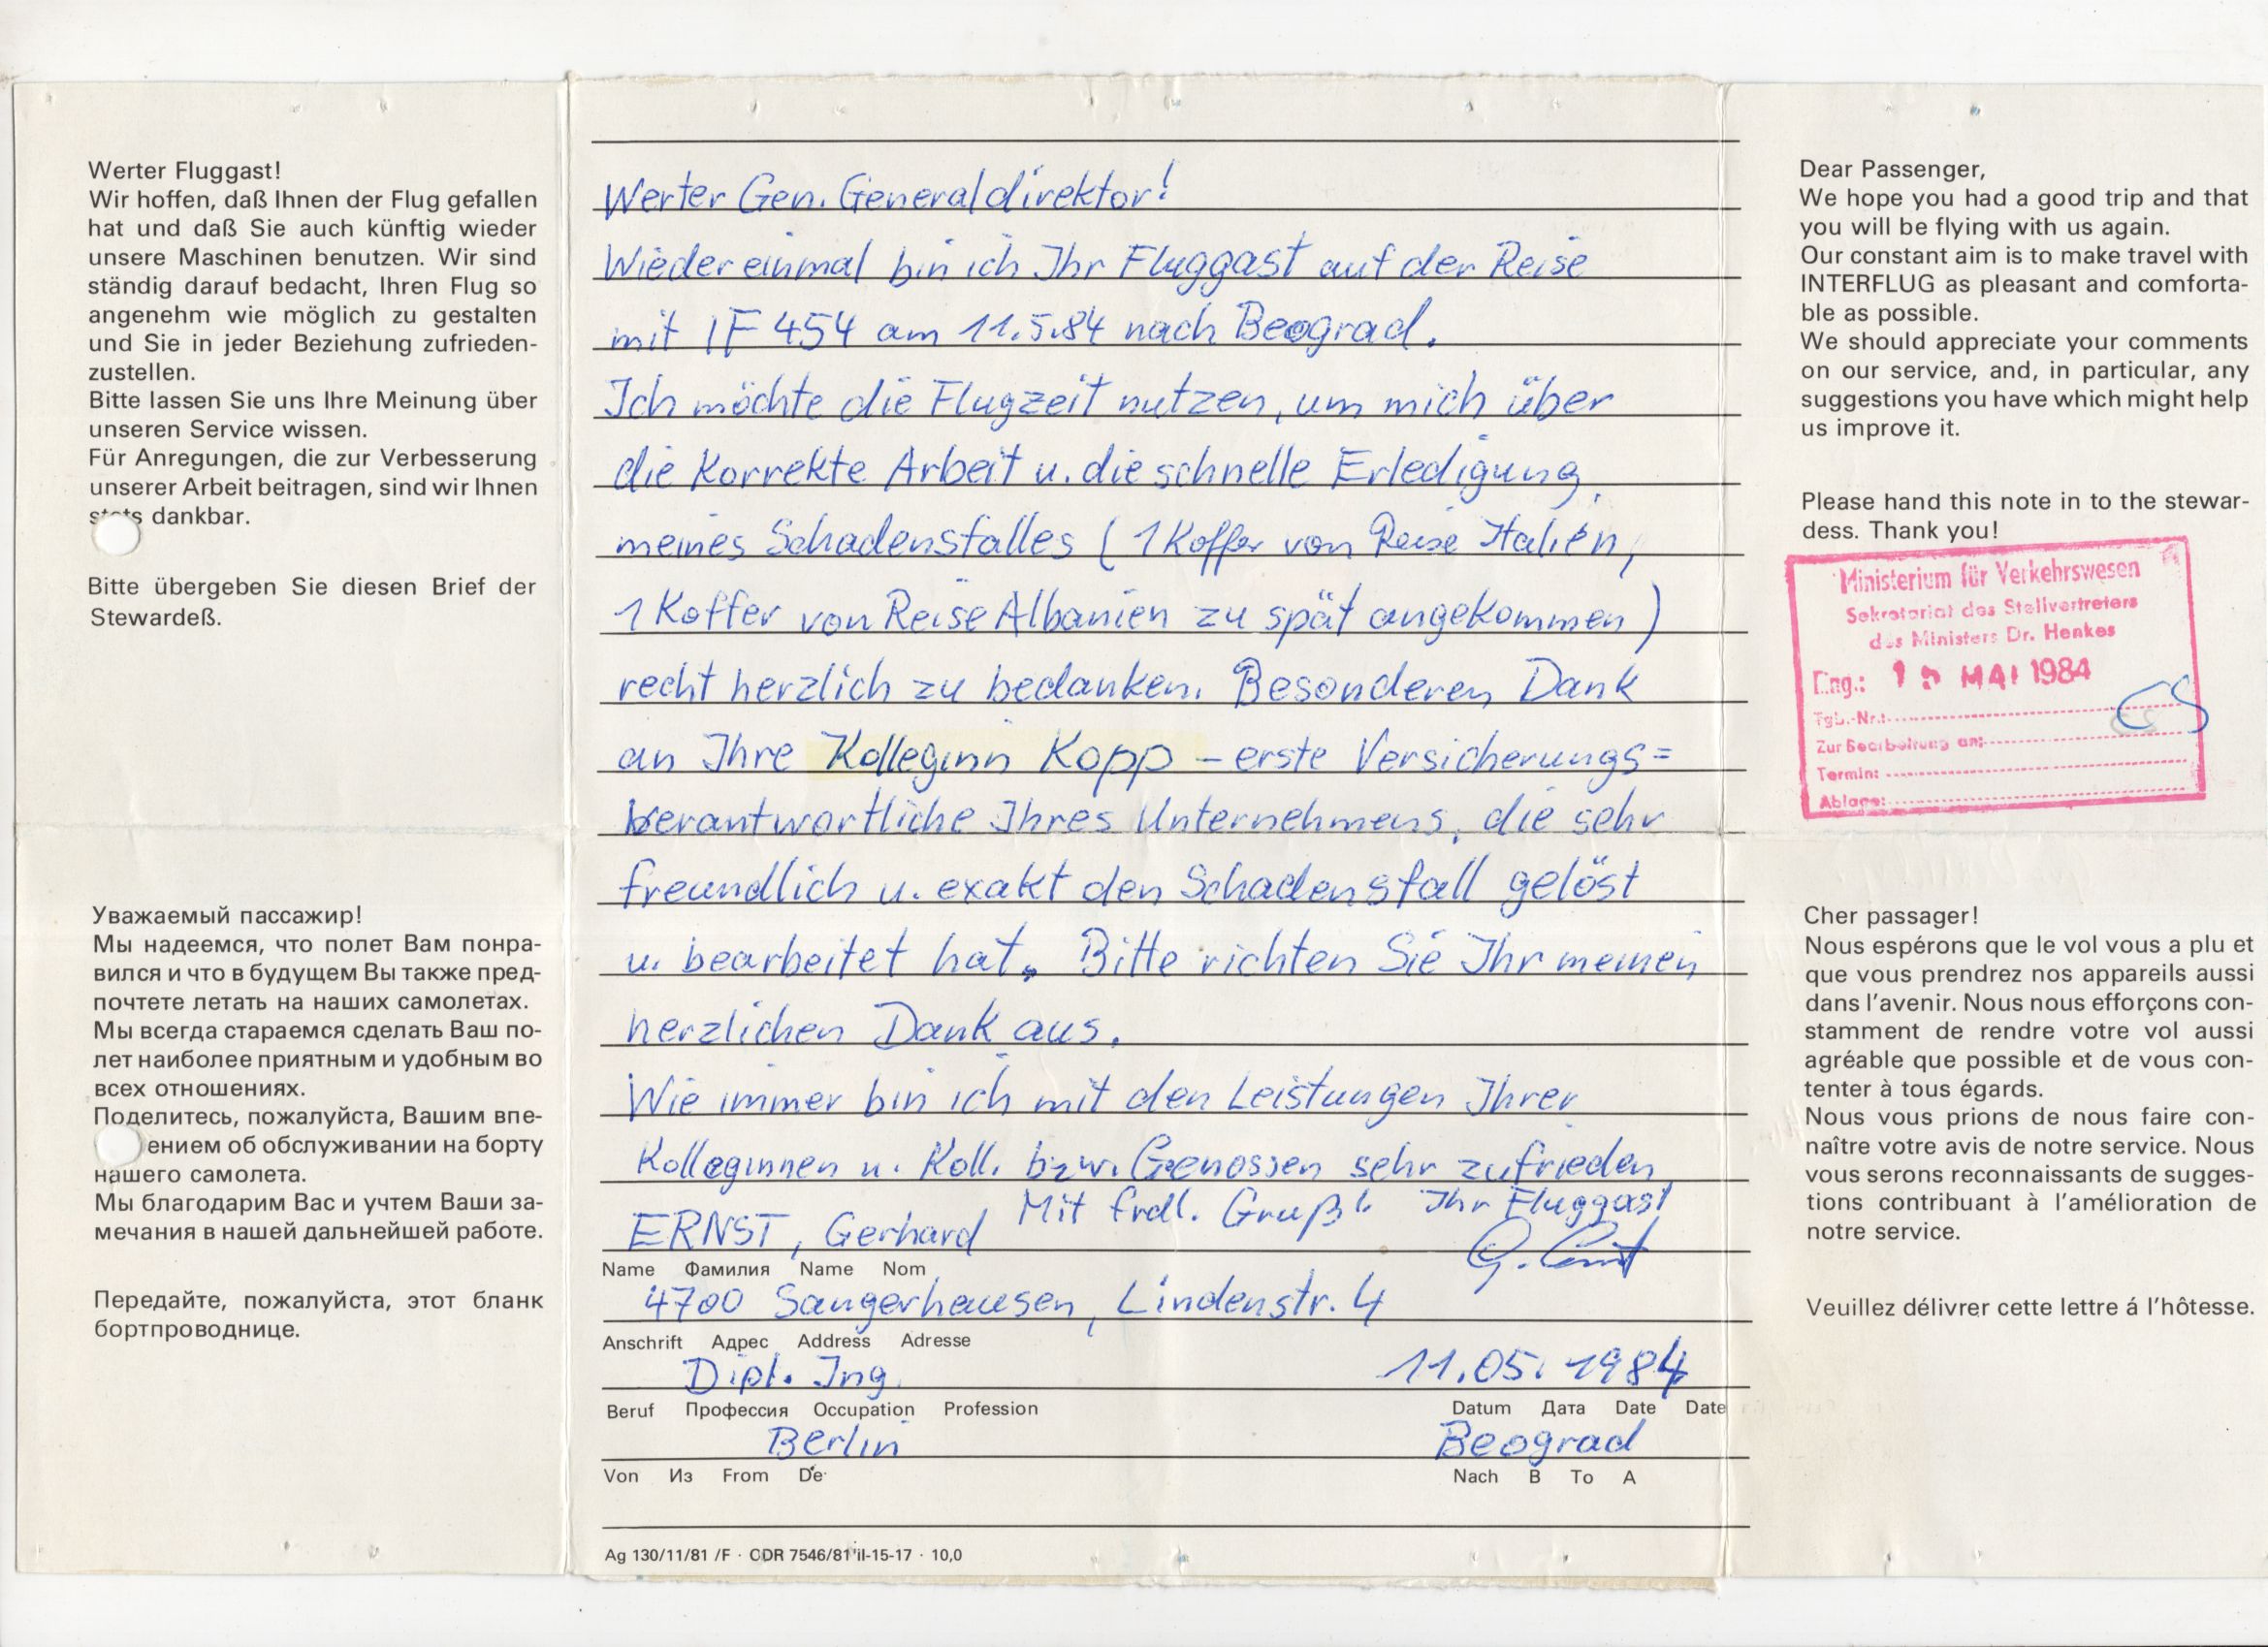 Werter Fluggast!
Wir hoffen, daß Ihnen der Flug gefallen
hat und daß Sie auch künftig wieder
unsere Maschinen benutzen. Wir sind
ständig darauf bedacht, Ihren Flug so
angenehm wie möglich zu gestalten
und Sie in jeder Beziehung zufrieden-
zustellen.
Bitte lassen Sie uns Ihre Meinung über
unseren Service wissen.
Für Anregungen, die zur Verbesserung
unserer Arbeit beitragen, sind wir Ihnen
stets dankbar.
Bitte übergeben Sie diesen Brief der
Stewardeß.
Уважаемый пассажир!
Мы надеемся, что полет Вам понра-
вился и что в будущем Вы также пред-
почтете летать на наших самолетах.
Мы всегда стараемся сделать Ваш по-
лет наиболее приятным и удобным во
всех отношениях.
Поделитесь, пожалуйста, Вашим впе-
ением об обслуживании на борту
нашего самолета.
Мы благодарим Вас и учтем Ваши за-
мечания в нашей дальнейшей работе.
Передайте, пожалуйста, этот бланк
бортпроводнице.
Werter Gen. Generaldirektor!
Wieder einmal bin ich Ihr Fluggast auf der Reise
mit IF 454 am 11.5.84 nach Beograd.
Ich möchte die Flugzeit nutzen, um mich über
die Korrekte Arbeit u. die schnelle Erledigung
meines Schadensfalles (1 Koffer von Reise Italien,
1 Koffer von Reise Albanien zu spät angekommen)
recht herzlich zu bedanken. Besonderen Dank
an Ihre Kolleginn Kopp – erste Versicherungs=
verantwortliche Ihres Unternehmens, die sehr
freundlich u. exakt den Schadensfall gelöst
u. bearbeitet hat. Bitte richten Sie Ihr meinen
herzlichen Dank aus.
Wie immer bin ich mit den Leistungen Ihrer
Kolleginnen u. Koll. bzw. Genossen sehr zufrieden
Mit frdl. Gruß! Ihr Fluggast
ERNST, Gerhard G. Ernst
Name Фамилия Name Nom
4700 Sangerhausen, Lindenstr. 4
Anschrift Адрес Address Adresse
Dipl. Ing. 11.05.1984
Beruf Профессия Occupation Profession Datum Дата Date Date
Berlin Beograd
Von Из From De Nach В To A
Ag 130/11/81 /F · DDR 7546/81 il-15-17 · 10,0
Dear Passenger,
We hope you had a good trip and that
you will be flying with us again.
Our constant aim is to make travel with
INTERFLUG as pleasant and comforta-
ble as possible.
We should appreciate your comments
on our service, and, in particular, any
suggestions you have which might help
us improve it.
Please hand this note in to the stewar-
dess. Thank you!
Ministerium für Verkehrswesen
Sekretariat des Stellvertreters
des Ministers Dr. Henkes
Eing.: MAI 1984
Tgb.-Nr.:
Zur Bearbeitung an:
Termin:
Ablage:
Cher passager!
Nous espérons que le vol vous a plu et
que vous prendrez nos appareils aussi
dans l'avenir. Nous nous efforçons con-
stamment de rendre votre vol aussi
agréable que possible et de vous con-
tenter à tous égards.
Nous vous prions de nous faire con-
naître votre avis de notre service. Nous
vous serons reconnaissants de sugges-
tions contribuant à l'amélioration de
notre service.
Veuillez délivrer cette lettre á l'hôtesse.